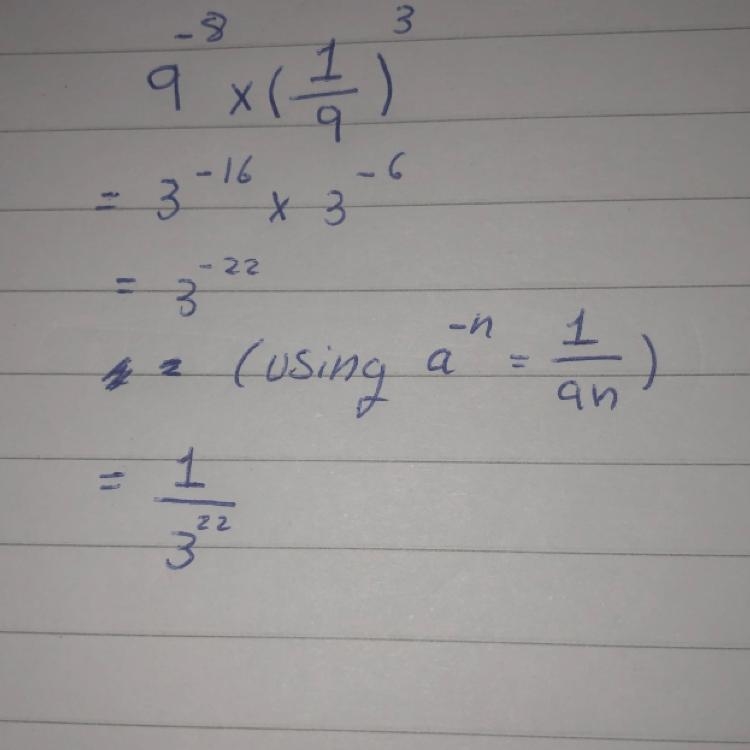 9⁻⁸ × (1/9)³
= 3⁻¹⁶ × 3⁻⁶
= 3⁻²²
= (using a⁻ⁿ = 1/an)
= 1/3²²